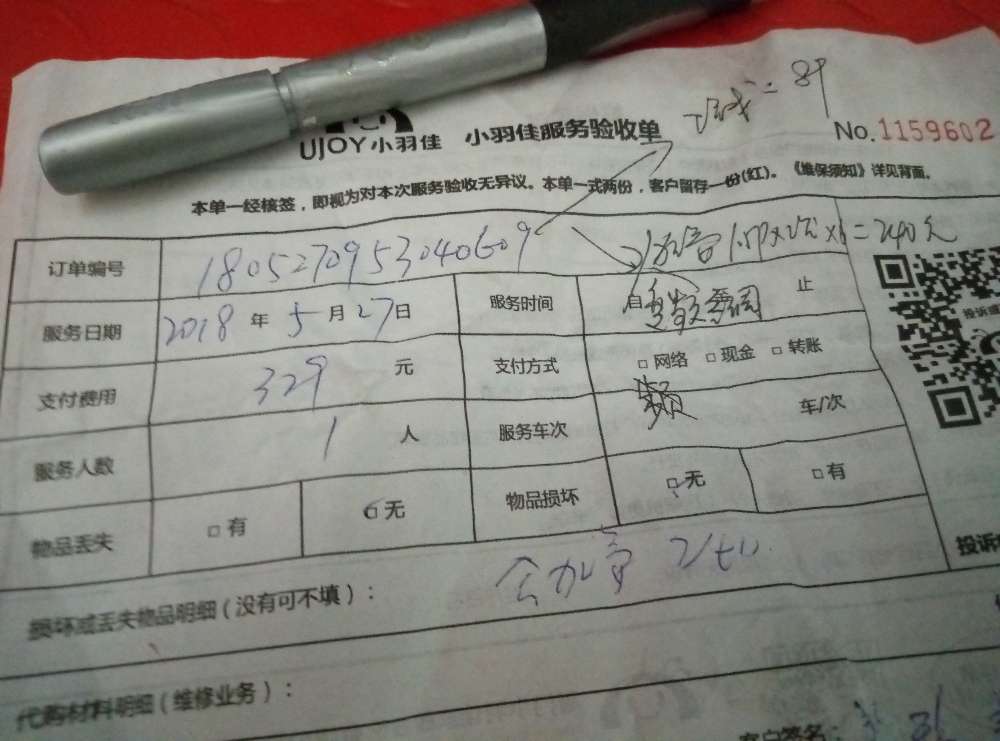 =89
UJOY小羽佳 小羽佳服务验收单
No.1159602
本单一经核签，即视为对本次服务验收无异议。本单一式两份，客户留存一份(红)。《维保须知》详见背面。
订单编号 1805270953040609
=240元
服务日期 2018年5月27日 服务时间 自 止
支付费用 329元 支付方式 □网络 □现金 □转账
服务人数 1人 服务车次 车/次
物品丢失 □有 无 物品损坏 □无 □有
投诉
损坏或丢失物品明细（没有可不填）：
代购材料明细（维修业务）：
客户签名：